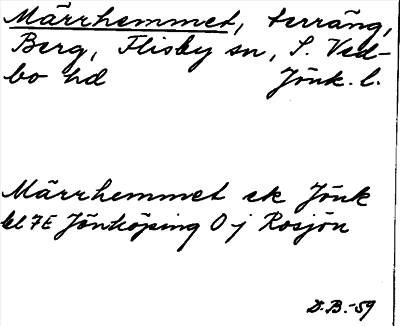 Märrhemmet, terräng,
Berg, Flisby sn, S. Ved-
bo hd Jönk. l.
Märrhemmet ek Jönk
bl 7E Jönköping O j Rosjön
D.B.-59